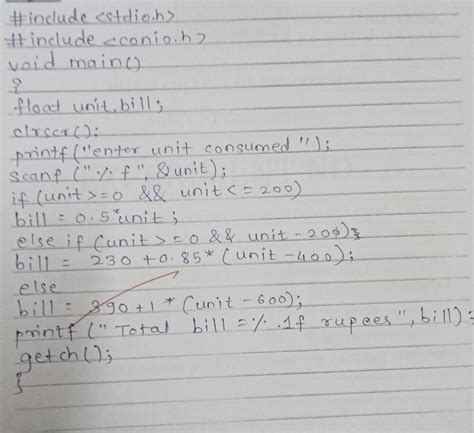 #include <stdio.h>
#include <conio.h>
void main()
{
float unit, bill;
clrscr();
printf("enter unit consumed");
scanf("%f", &unit);
if (unit>=0 && unit<=200)
bill = 0.5*unit;
else if (unit>=0 && unit-200)}
bill = 230 + 0.85* (unit-400);
else
bill = 390+1 * (unit-600);
printf ("Total bill =%.1f rupees", bill);
getch();
}